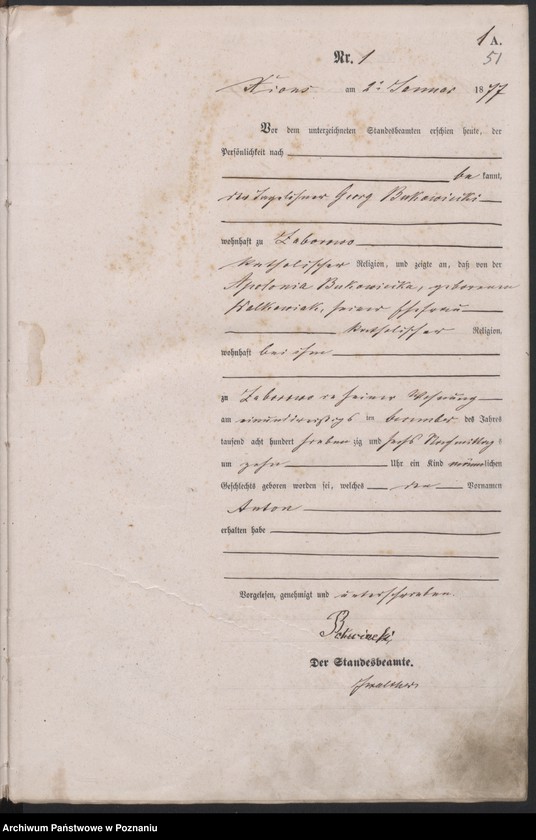 1 A.
51
Nr. 1
Xions am 2. Januar 1877
Vor dem unterzeichneten Standesbeamten erschien heute, der
Persönlichkeit nach
be kannt,
der Tagelöhner Georg Bukowiecki
wohnhaft zu Zaborowo
katholischer Religion, und zeigte an, daß von der
Apolonia Bukowiecka, geborenen
Walkowiak, seiner Ehefrau
katholischer Religion,
wohnhaft bei ihm
zu Zaborowo in seiner Wohnung
am einunddreißigs ten Dezember des Jahres
tausend acht hundert sieben zig und sechs Nachmittags
um zehn Uhr ein Kind männlichen
Geschlechts geboren worden sei, welches den Vornamen
Anton
erhalten habe
Vorgelesen, genehmigt und unterschrieben.
Der Standesbeamte.
Archiwum Państwowe w Poznaniu